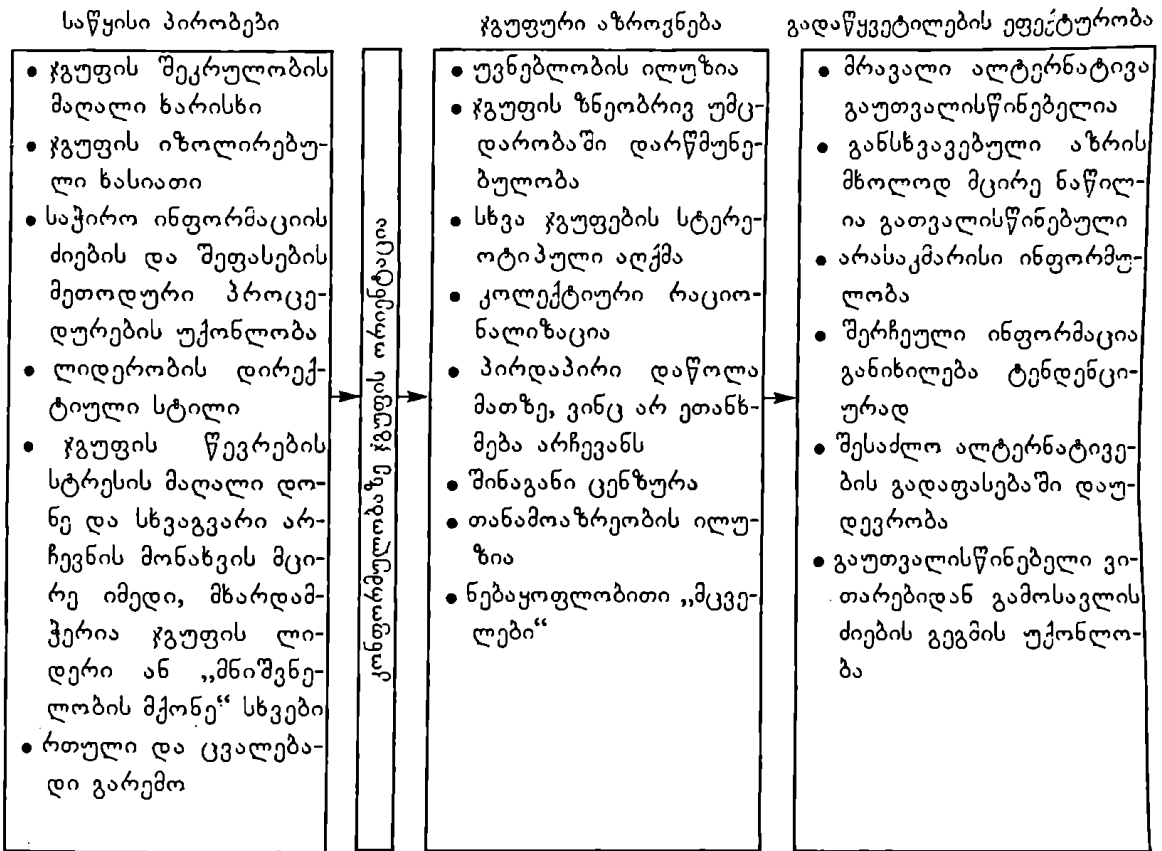 საწყისი პირობები
• ჯგუფის შეკრულობის
მაღალი ხარისხი
• ჯგუფის იზოლირებუ-
ლი ხასიათი
• საჭირო ინფორმაციის
ძიების და შეფასების
მეთოდური პროცე-
დურების უქონლობა
• ლიდერობის დირექ-
ტიული სტილი
• ჯგუფის წევრების
სტრესის მაღალი დო-
ნე და სხვაგვარი არ-
ჩევნის მონახვის მცი-
რე იმედი, მხარდამ-
ჭერია ჯგუფის ლი-
დერი ან „მნიშვნე-
ლობის მქონე“ სხვები
• რთული და ცვალება-
დი გარემო
კონფორმულობაზე ჯგუფის ორიენტაცია
ჯგუფური აზროვნება
• უვნებლობის ილუზია
• ჯგუფის ზნეობრივ უმც-
დარობაში დარწმუნე-
ბულობა
• სხვა ჯგუფების სტერე-
ოტიპული აღქმა
• კოლექტიური რაციო-
ნალიზაცია
• პირდაპირი დაწოლა
მათზე, ვინც არ ეთანხ-
მება არჩევანს
• შინაგანი ცენზურა
• თანამოაზრეობის ილუ-
ზია
• ნებაყოფლობითი „მცვე-
ლები“
გადაწყვეტილების ეფექტურობა
• მრავალი ალტერნატივა
გაუთვალისწინებელია
• განსხვავებული აზრის
მხოლოდ მცირე ნაწილ-
ია გათვალისწინებული
• არასაკმარისი ინფორმუ-
ლობა
• შერჩეული ინფორმაცია
განიხილება ტენდენცი-
ურად
• შესაძლო ალტერნატივე-
ბის გადაფასებაში დაუ-
დევრობა
• გაუთვალისწინებელი ვი-
თარებიდან გამოსავლის
ძიების გეგმის უქონლო-
ბა